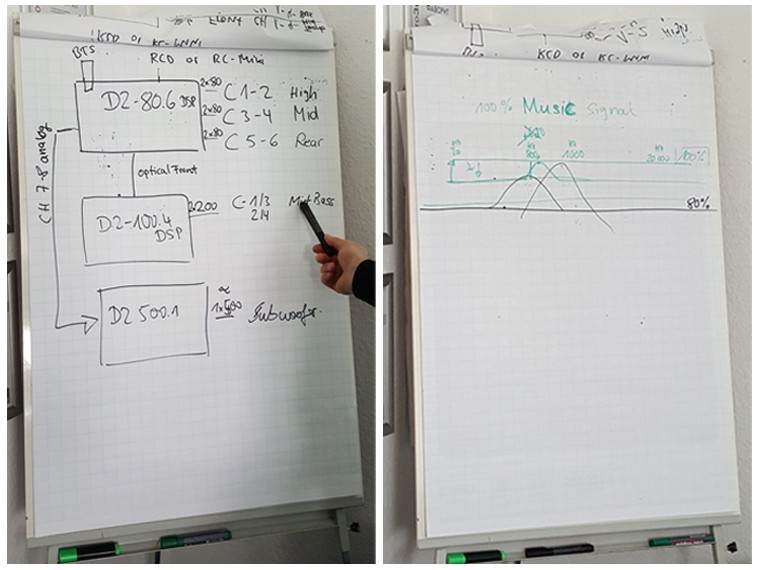 KCD or RC-Mini
BTS
RCD or RC-Mini
D2-80.6 DSP
2x80 C 1-2 High
2x80 C 3-4 Mid
2x80 C 5-6 Rear
CH 7-8 analog
optical Front
D2-100.4
DSP
2x200 C-1/3
2/4
Bass
D2 500.1
Subwoofer
High
100% Music Signal
1000
20000
100%
80%